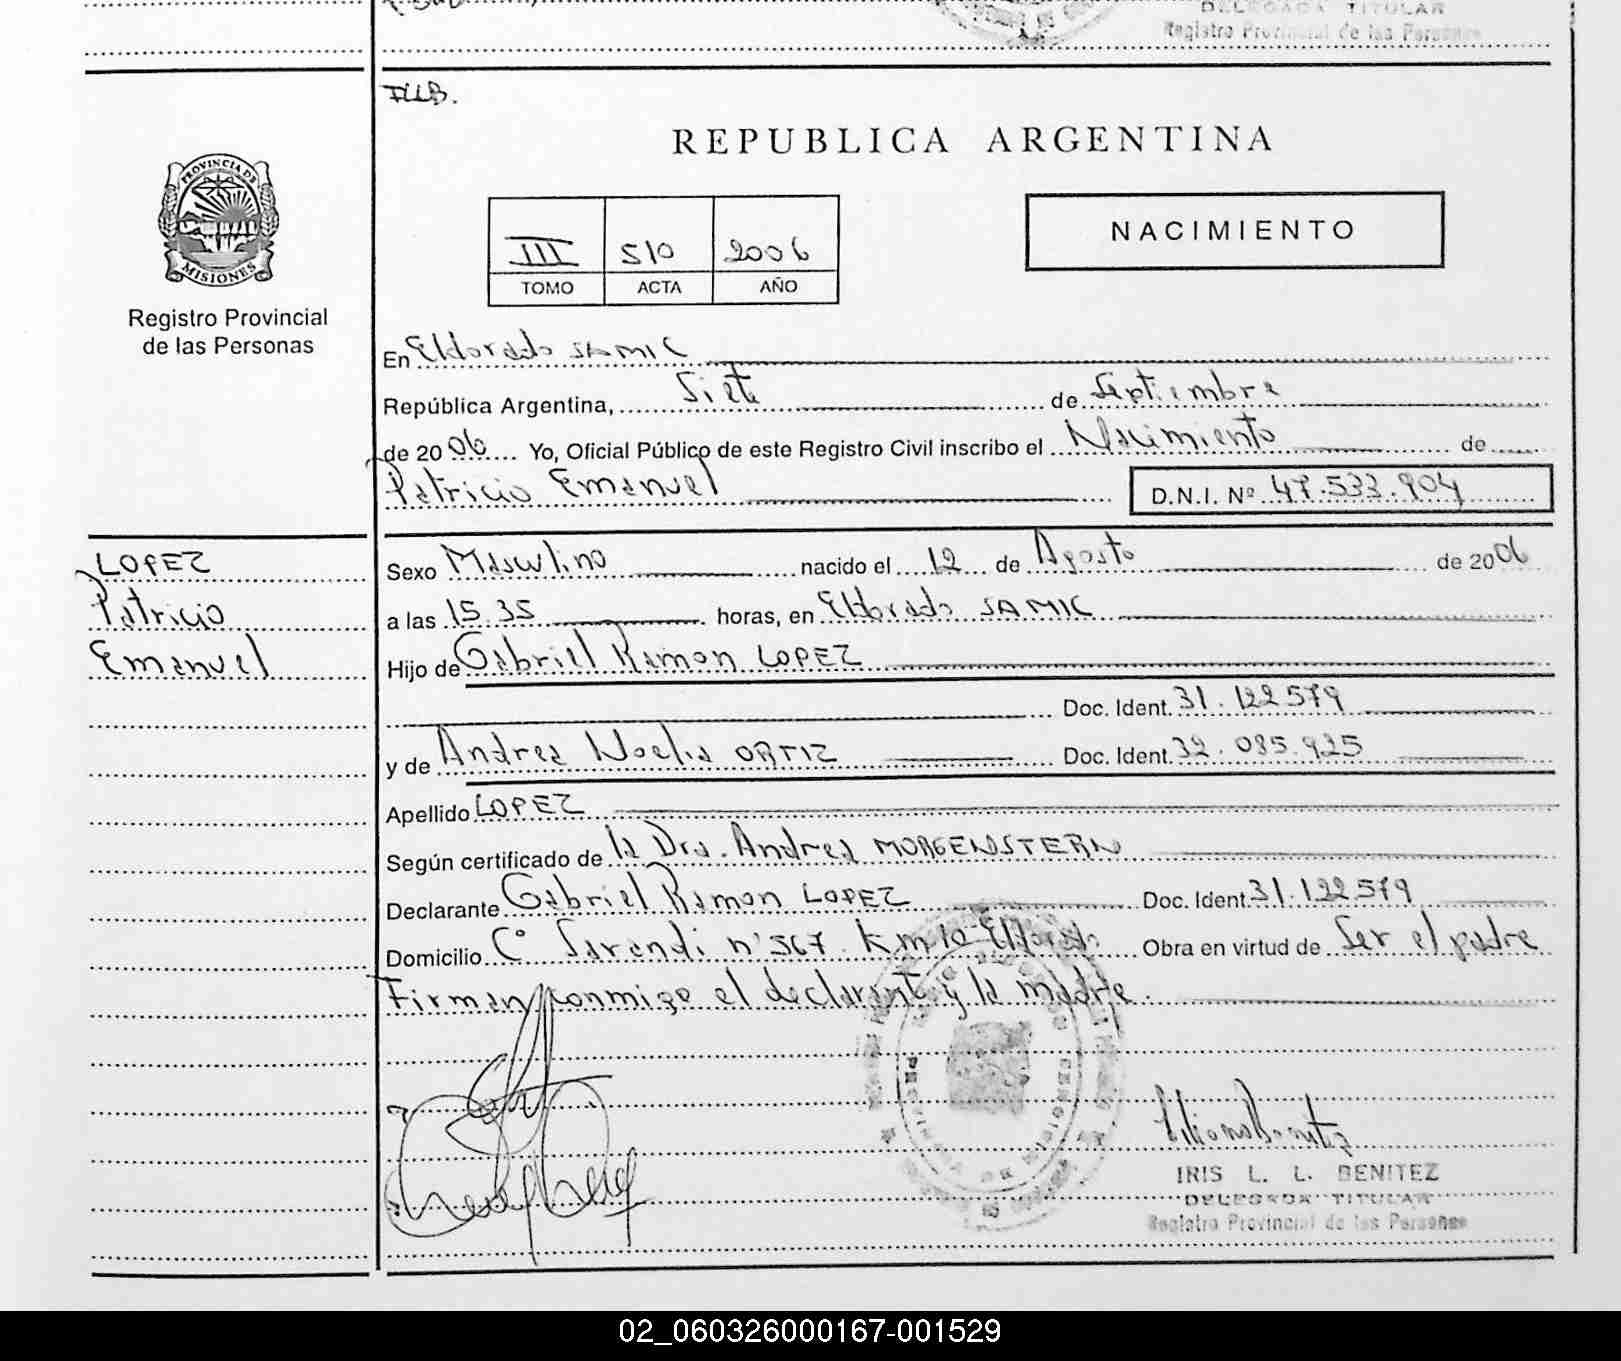 DELEGADA TITULAR
Registro Provincial de las Personas
REPUBLICA ARGENTINA
PROVINCIA DE
MISIONES
Registro Provincial
de las Personas
NACIMIENTO
III 510 2006
TOMO ACTA AÑO
En Eldorado SAMIC
República Argentina, Siete de Septiembre
de 2006 Yo, Oficial Público de este Registro Civil inscribo el Nacimiento de
Patricio Emanuel D.N.I. Nº 47.533.904
LOPEZ
Patricio
Emanuel
Sexo Masculino nacido el 12 de Agosto de 2006
a las 15.35 horas, en Eldorado SAMIC
Hijo de Gabriel Ramon LOPEZ
Doc. Ident. 31.122.579
y de Andrea Noelia ORTIZ Doc. Ident. 32.085.925
Apellido LOPEZ
Según certificado de la Dra. Andrea MORGENSTERN
Declarante Gabriel Ramon LOPEZ Doc. Ident. 31.122.579
Domicilio Cº Sarandi nº 567. Km 10-Eldorado Obra en virtud de Ser el padre
Firman conmigo el declarante y la madre.
IRIS L. L. BENITEZ
DELEGADA TITULAR
Registro Provincial de las Personas
02_060326000167-001529